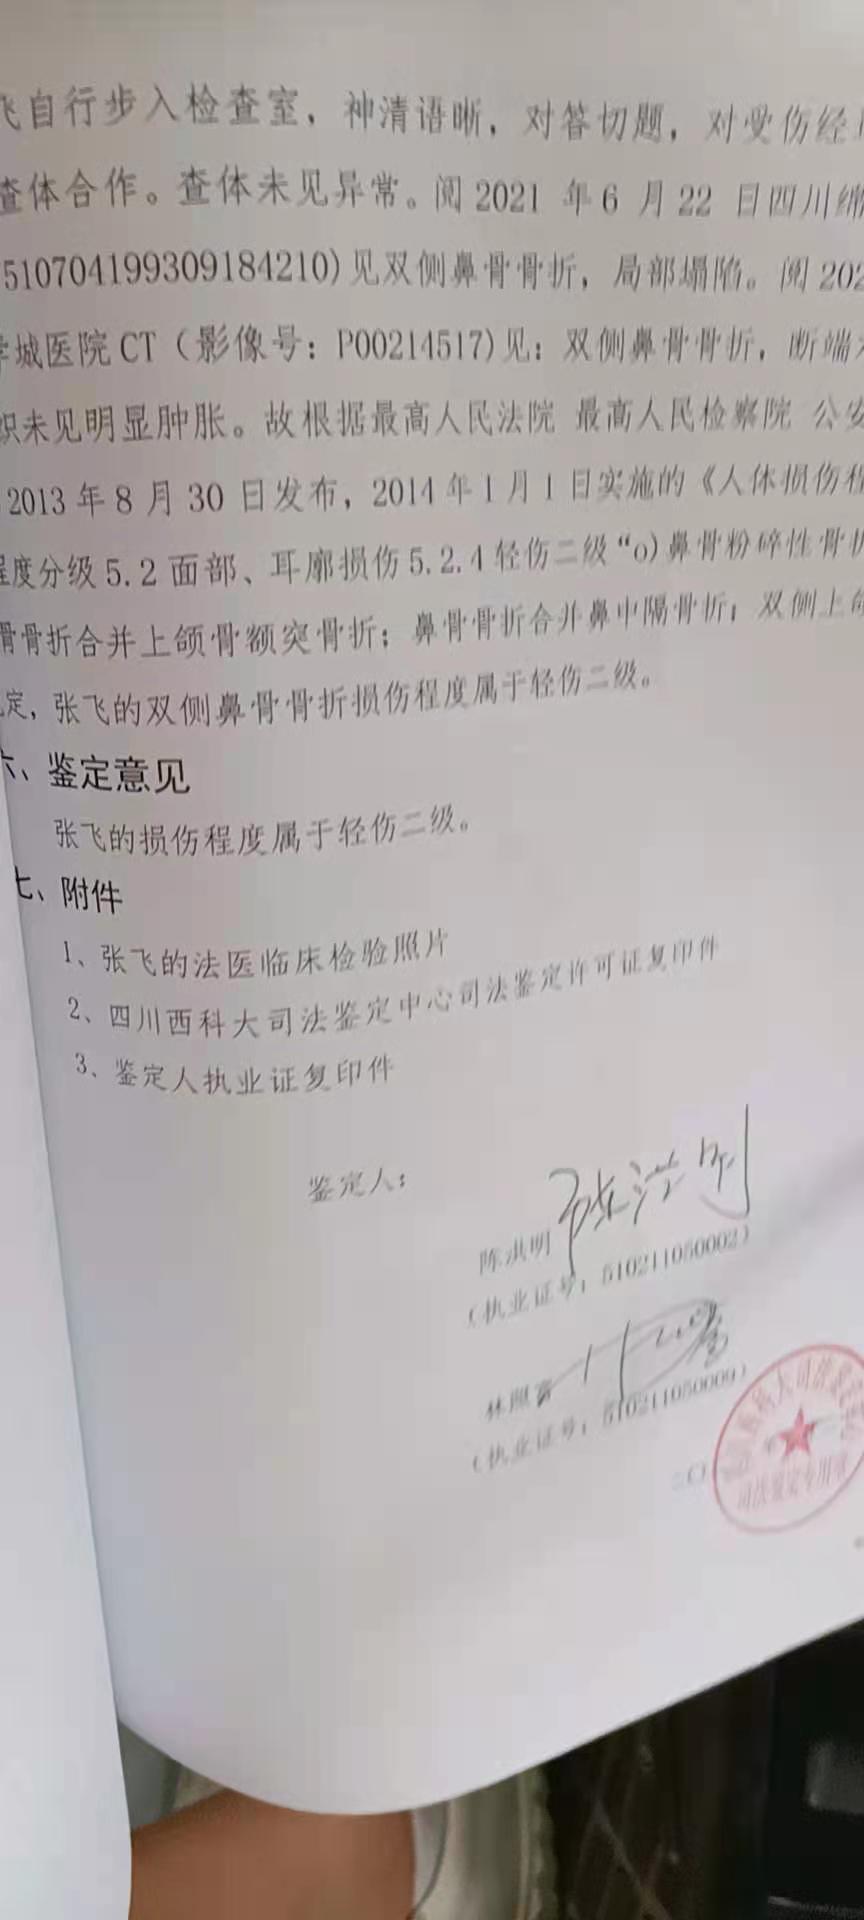 飞自行步入检查室，神清语晰，对答切题，对受伤经
查体合作。查体未见异常。阅2021 年 6 月 22 日四川绵
510704199309184210)见双侧鼻骨骨折，局部塌陷。阅 202
学城医院 CT（影像号：P00214517)见：双侧鼻骨骨折，断端
织未见明显肿胀。故根据最高人民法院 最高人民检察院 公安
2013 年 8 月 30 日发布，2014 年 1 月 1 日实施的《人体损伤程
程度分级 5.2 面部、耳廓损伤 5.2.4 轻伤二级“o)鼻骨粉碎性骨折
骨骨折合并上颌骨额突骨折；鼻骨骨折合并鼻中隔骨折；双侧上颌
定，张飞的双侧鼻骨骨折损伤程度属于轻伤二级。
六、鉴定意见
张飞的损伤程度属于轻伤二级。
七、附件
1、张飞的法医临床检验照片
2、四川西科大司法鉴定中心司法鉴定许可证复印件
3、鉴定人执业证复印件
鉴定人：
陈洪明
（执业证号：510211050002）
林照富
（执业证号：510211050009）
二〇
司法鉴定专用章